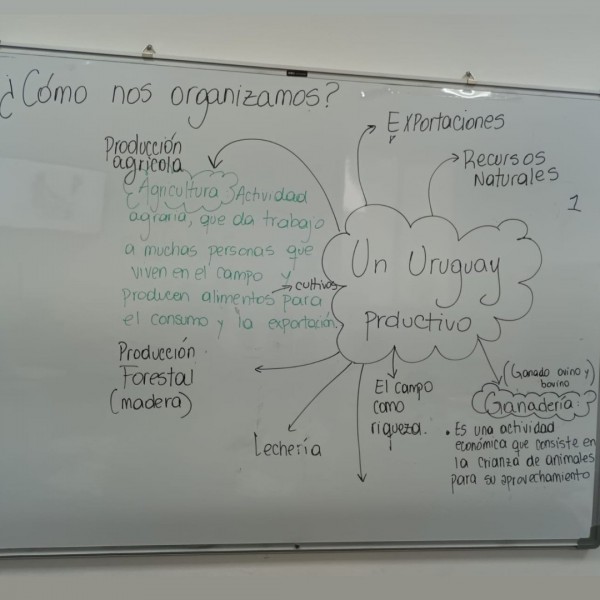 ¿Cómo nos organizamos?
Producción
agrícola
Agricultura Actividad
agraria, que da trabajo
a muchas personas que
viven en el campo y
producen alimentos para
el consumo y la exportación
cultivos
Exportaciones
Recursos
Naturales
1
Un Uruguay
Prductivo
Producción
Forestal
(madera)
Lechería
El campo
como
riqueza.
(Ganado ovino y)
bovino
Ganadería:
• Es una actividad
económica que consiste en
la crianza de animales
para su aprovechamiento